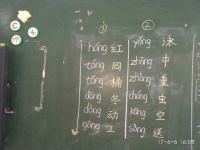 ① ②
hóng 红 yǒng 泳
tóng 同 zhōng 中
tǒng 桶 zhòng 重
dōng 冬 chóng 虫
dòng 动 kōng 空
gōng 工 sòng 送
17-6-6 16:08